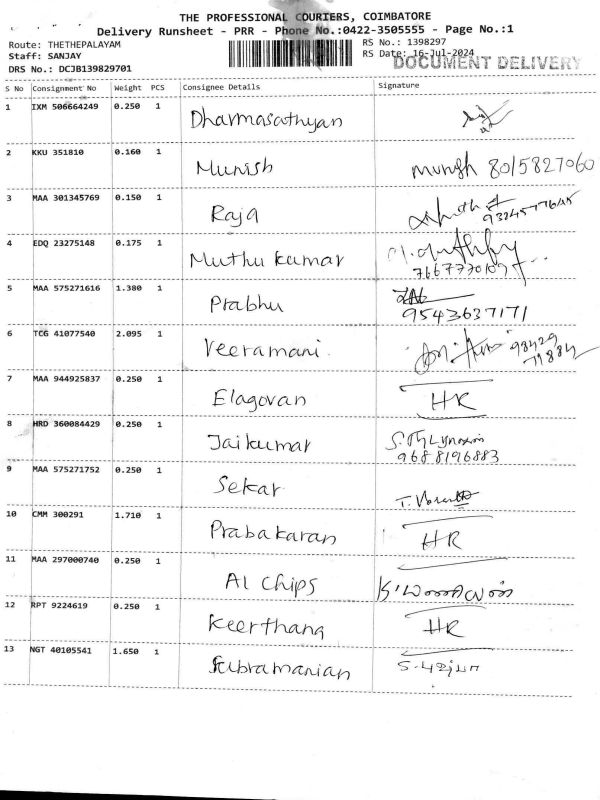 THE PROFESSIONAL COURIERS, COIMBATORE
Delivery Runsheet - PRR - Phone No.:0422-3505555 - Page No.:1
Route: THETHEPALAYAM
RS No.: 1398297
Staff: SANJAY
RS Date: 16-Jul-2024
DOCUMENT DELIVERY
DRS No.: DCJB139829701
S No Consignment No Weight PCS Consignee Details Signature
1 IXM 506664249 0.250 1 Dharmasathyan
2 KKU 351810 0.160 1 Munish 8015827060
3 MAA 301345769 0.150 1 Raja
4 EDQ 23275148 0.175 1 Muthu kumar
5 MAA 575271616 1.380 1 Prabhu
9543637171
6 TCG 41077540 2.095 1 Veeramani
7 MAA 944925837 0.250 1 Elagovan HR
8 HRD 360084429 0.250 1 Jaikumar
9688196883
9 MAA 575271752 0.250 1 Sekar
10 CMM 300291 1.710 1 Prabakaran HR
11 MAA 297000740 0.250 1 A1 Chips
12 RPT 9224619 0.250 1 Keerthana HR
13 NGT 40105541 1.650 1 Subramanian